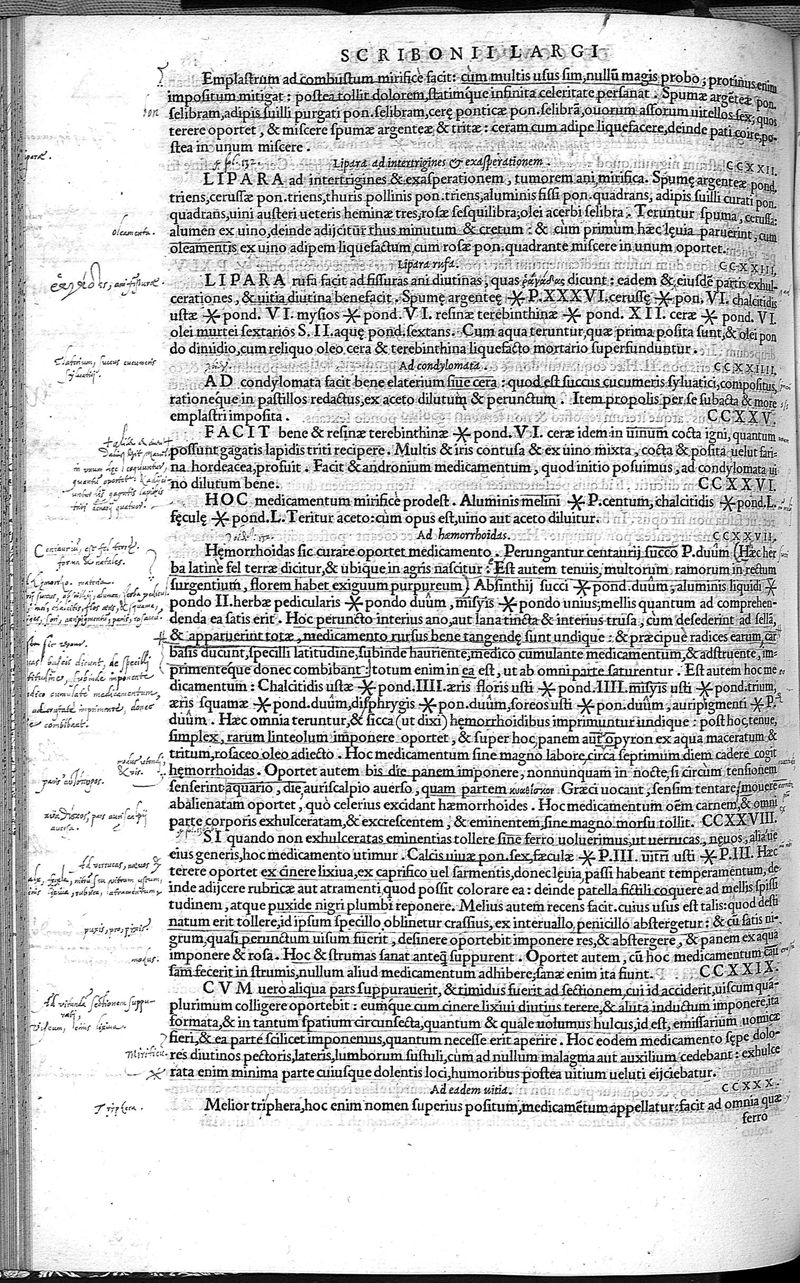 SCRIBONII LARGI
Emplastrum ad combustum mirifice facit: cùm multis usus sim, nullũ magis probo; protinus enim
impositum mitigat: postea tollit dolorem, statimque infinita celeritate persanat. Spumæ argẽteæ pon.
selibram, adipis suilli purgati pon. selibram, cerę ponticæ pon. selibrã, ouorum assorum uitellos sex, quos
terere oportet, & miscere spumæ argenteæ & tritæ: ceram cum adipe liquefacere, deinde pati coire, po-
stea in unum miscere.
Lipara ad intertrigines & exasperationem. CCXXII.
LIPARA ad intertrigines & exasperationem, tumorem ani, mirifica. Spumę argenteæ pond.
triens, cerussæ pon. triens, thuris pollinis pon. triens, aluminis fissi pon. quadrans, adipis suilli curati pon.
quadrans, uini austeri ueteris heminæ tres, rosæ sesquilibra, olei acerbi selibra. Teruntur spuma, cerussa:
alumen ex uino, deinde adijcitur thus minutum & cretum: & cùm primum hæc lęuia paruerint, cum
oleamentis ex uino adipem liquefactum, cum rosæ pon. quadrante miscere in unum oportet.
oleamenta.
Lipara rufa. CCXXIII.
LIPARA rufa facit ad fissuras ani diutinas, quas ῥαγάδας dicunt: eadem & eiusdẽ partis exhul-
cerationes, & uitia diutina benefacit. Spumę argenteę ✳ P. XXXVI. cerussę ✳ pon. VI. chalcitidis
ustæ ✳ pond. VI. mysios ✳ pond. VI. resinæ terebinthinæ ✳ pond. XII. ceræ ✳ pond. VI.
olei murtei sextarios S. II. aquę pond. sextans. Cum aqua teruntur, quæ prima posita sunt, & olei pon
do dimidio, cum reliquo oleo cera & terebinthina liquefacto mortario superfunduntur.
Ad condylomata. CCXXIIII.
AD condylomata facit bene elaterium siue cera: quod est succus cucumeris syluatici, compositus,
rationeque in pastillos redactus, ex aceto dilutum & perunctum. Item propolis per se subacta & more
emplastri imposita. CCXXV.
Elaterium, succus cucumeris
syluatici.
FACIT bene & resinæ terebinthinæ ✳ pond. VI. ceræ idem in uinum cocta igni, quantum
possunt gagatis lapidis triti recipere. Multis & iris contusa & ex uino mixta, cocta & posita uelut fari-
na hordeacea, profuit. Facit & andronium medicamentum, quod initio posuimus, ad condylomata ui
no dilutum bene. CCXXVI.
HOC medicamentum mirifice prodest. Aluminis melini ✳ P. centum, chalcitidis ✳ pond. L.
fęculę ✳ pond. L. Teritur aceto: cum opus est, uino aut aceto diluitur.
Ad hæmorrhoidas. CCXXVII.
Hęmorrhoidas sic curare oportet medicamento. Perungantur centaurij succo P. duûm (Hæc her
ba latine fel terræ dicitur, & ubique in agris nascitur: Est autem tenuis, multorum ramorum in rectum
surgentium, florem habet exiguum purpureum) Absinthij succi ✳ pond. duûm, aluminis liquidi ✳
pondo II. herbæ pedicularis ✳ pondo duûm, misyis ✳ pondo unius; mellis quantum ad comprehen-
denda ea satis erit. Hoc peruncto interius ano, aut lana tincta & interius trusa, cùm desederint ad sellã,
& apparuerint totæ, medicamento rursus bene tangendę sunt undique: & præcipue radices earum, quas
basis ducunt, specilli latitudine, subinde hauriente, medico cumulante medicamentum, & adstruente, im-
primenteque donec combibant: totum enim in ea est, ut ab omni parte saturentur. Est autem hoc me
dicamentum: Chalcitidis ustæ ✳ pond. IIII. æris floris usti ✳ pond. IIII. misyis usti ✳ pond. trium,
æris squamæ ✳ pon. duûm, disphrygis ✳ pon. duûm, soreos usti ✳ pon. duûm, auripigmenti ✳ P.
duûm. Hæc omnia teruntur, & sicca (ut dixi) hęmorrhoidibus imprimuntur undique: post hoc, tenue,
simplex, rarum linteolum imponere oportet, & super hoc panem autopyron ex aqua maceratum &
tritum, rosaceo oleo adiecto. Hoc medicamentum sine magno labore, circa septimum diem cadere cogit
hęmorrhoidas. Oportet autem bis die panem imponere, nonnunquam in nocte, si circum tensionem
senserint aquario, die, auriscalpio auerso, quam partem κυαθίσκον Græci uocant, sensim tentare, mouere
abalienatam oportet, quò celerius excidant hæmorrhoides. Hoc medicamentum oẽm carnem, & omni
parte corporis exhulceratam, & excrescentem, & eminentem, sine magno morsu tollit. CCXXVIII.
SI quando non exhulceratas eminentias tollere sine ferro uoluerimus, ut uerrucas, nęuos, aliaue
eius generis, hoc medicamento utimur. Calcis uiuæ pon. sex, fæculæ ✳ P. III. uitri usti ✳ P. III. Hæc
terere oportet ex cinere lixiua, ex caprifico uel sarmentis, donec lęuia, passi habeant temperamentum, de-
inde adijcere rubricæ aut atramenti, quod possit colorare ea: deinde patella fictili coquere ad mellis spissi
tudinem, atque puxide nigri plumbi reponere. Melius autem recens facit. cuius usus est talis: quod desti
natum erit tollere, id ipsum specillo, oblinetur crassius, ex interuallo, penicillo abstergetur: & cũ satis ni-
grum, quasi perunctum uisum fuerit, desinere oportebit imponere res, & abstergere, & panem ex aqua
imponere & rosa. Hoc & strumas sanat anteq̃ suppurent. Oportet autem, cũ hoc medicamentum cau
sam fecerit in strumis, nullum aliud medicamentum adhibere, sanæ enim ita fiunt. CCXXIX.
puxis, pro, pixis.
modus.
CVM uero aliqua pars suppurauerit, & timidus fuerit ad sectionem, cui id acciderit, uiscum quã-
plurimum colligere oportebit: eumque cum cinere lixiui diutius terere, & aluta inductum imponere, ita
formata, & in tantum spatium circunsecta, quantum & quale uolumus hulcus, id est, emissarium uomicæ
fieri, & ea parte scilicet imponemus, quantum necesse erit aperire. Hoc eodem medicamento sępe dolo-
res diutinos pectoris, lateris, lumborum sustuli, cùm ad nullum malagma aut auxilium cedebant: exhulce
rata enim minima parte cuiusque dolentis loci, humoribus postea uitium ueluti eijciebatur.
Ad eadem uitia. CCXXX.
Melior triphera, hoc enim nomen superius positum, medicamẽtum appellatur: facit ad omnia quæ
Tryphera.
ferro